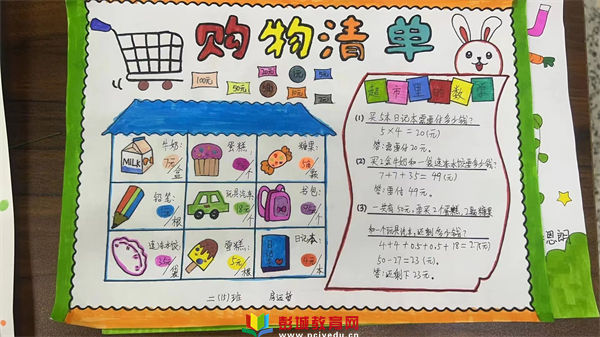 购物清单
100元
50元
20元
5元
10元
超市里的数学
牛奶:
7元/盒
MILK
蛋糕:
/个
糖果:
/颗
铅笔:
/根
玩具汽车:
18元/个
书包:
/个
速冻水饺:
35元/袋
雪糕:
5元/根
日记
日记本:
/本
(1) 买5本日记本需要付多少钱?
5×4=20(元)
答:需要付20元。
(2) 买2盒牛奶和一袋速冻水饺要多少钱?
7+7+35=49(元)
答:要付49元。
(3) 一共有50元,要买2个蛋糕,2颗糖果
和一个玩具汽车,还剩多少钱?
4+4+0.5+0.5+18=27(元)
50-27=23(元)
答:还剩下23元。
二(15)班
恩朗
彭城教育网
www.pcjyedu.cn